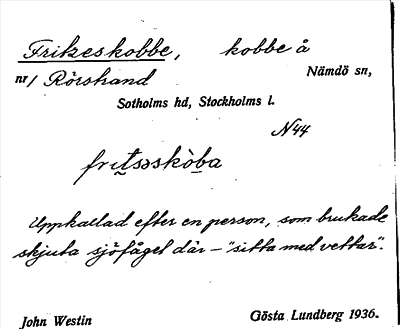 Frikeskobbe, kobbe å
nr / Rörstrand Nämdö sn,
Sotholms hd, Stockholms l.
N 44
fritsəskòba
Uppkallad efter en person, som brukade
skjuta sjöfågel där – "sitta med vettar".
John Westin Gösta Lundberg 1936.